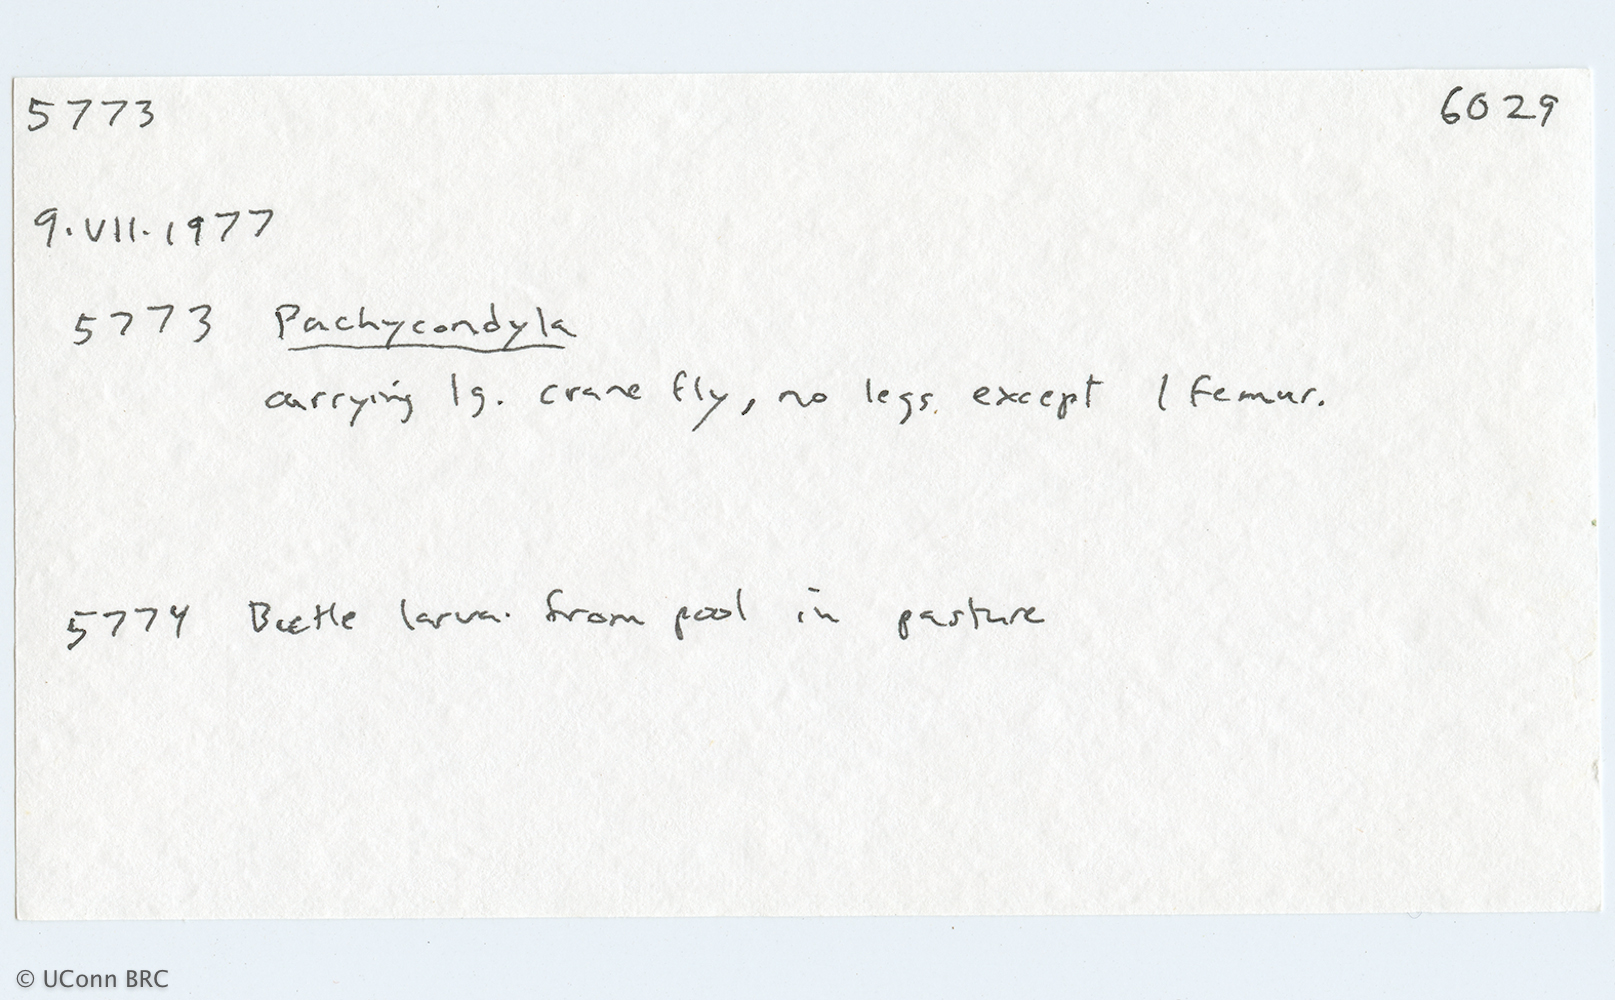 5773 6029
9.VII.1977
5773 Pachycondyla
carrying lg. crane fly, no legs except 1 femur.
5774 Beetle larva. from pool in pasture
© UConn BRC